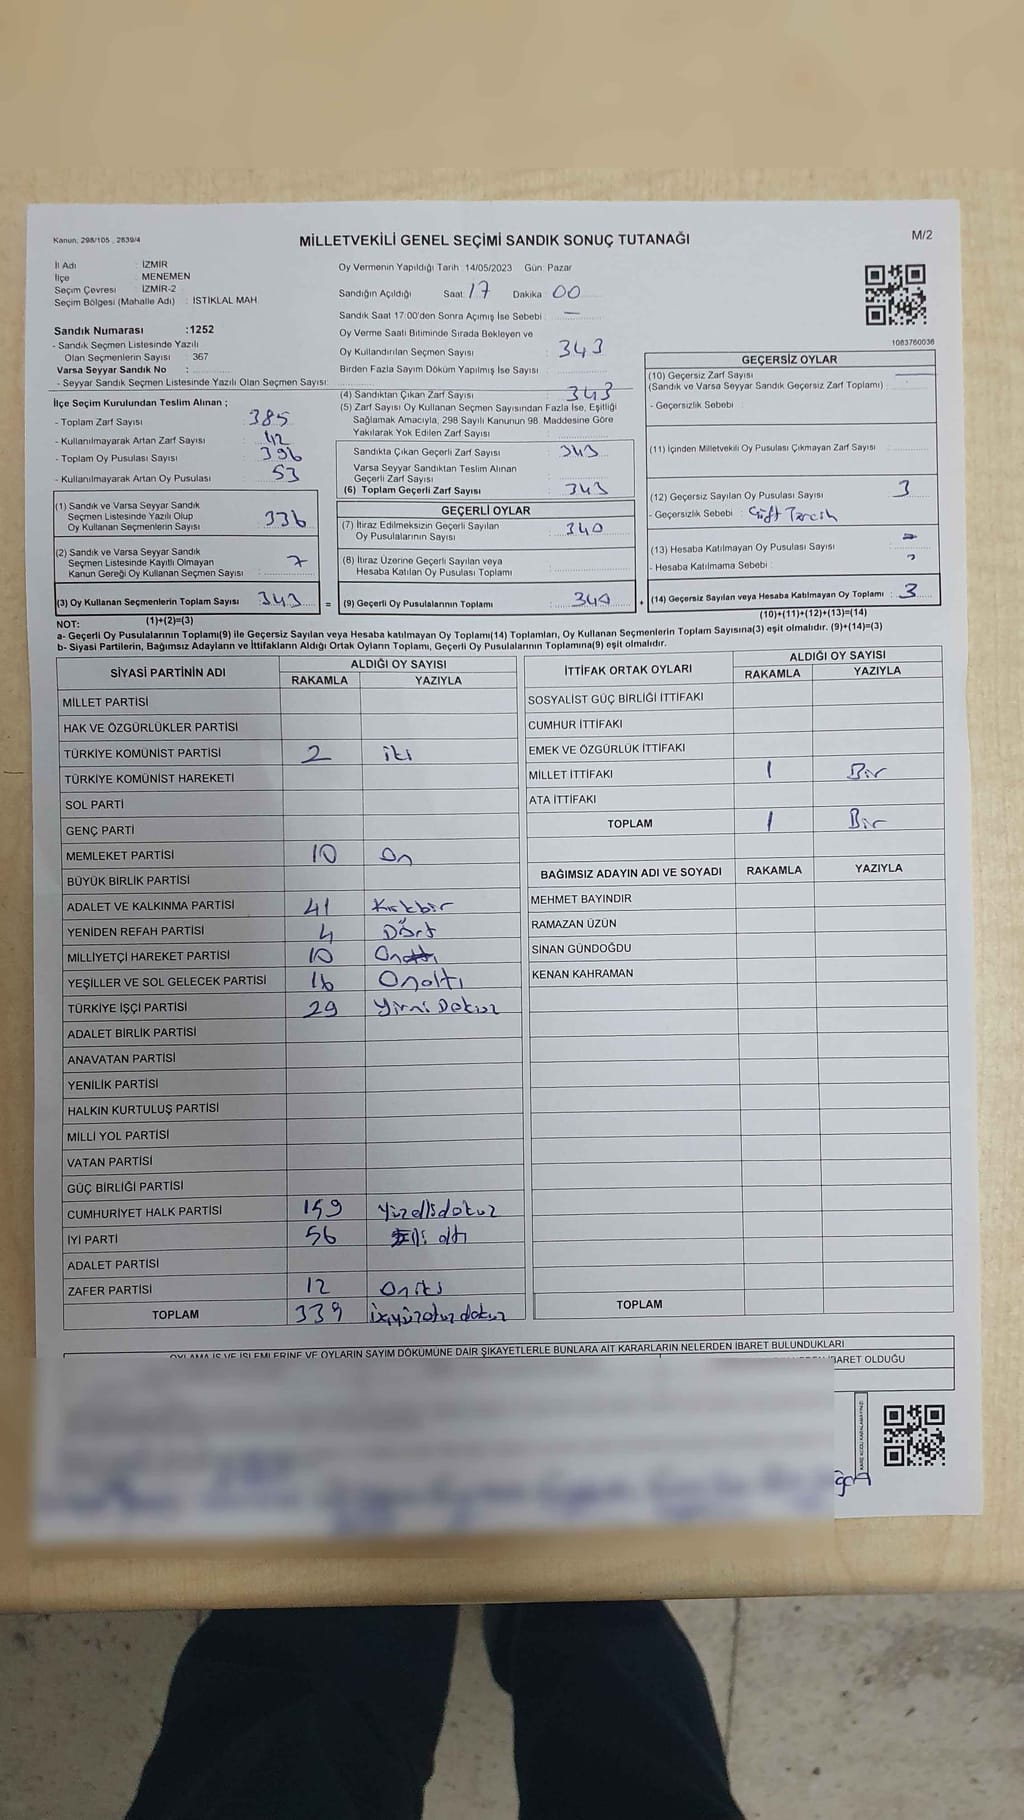 Kanun. 298/105 , 2839/4
MİLLETVEKİLİ GENEL SEÇİMİ SANDIK SONUÇ TUTANAĞI
M/2
İl Adı : İZMİR
İlçe : MENEMEN
Seçim Çevresi : İZMİR-2
Seçim Bölgesi (Mahalle Adı) : İSTİKLAL MAH
Oy Vermenin Yapıldığı Tarih : 14/05/2023 Gün: Pazar
Sandığın Açıldığı Saat: 17 Dakika 00
Sandık Saat 17:00'den Sonra Açımış İse Sebebi : —
Oy Verme Saati Bitiminde Sırada Bekleyen ve
Oy Kullandırılan Seçmen Sayısı : 343
Birden Fazla Sayım Döküm Yapılmış İse Sayısı :
1083760036
Sandık Numarası :1252
- Sandık Seçmen Listesinde Yazılı
Olan Seçmenlerin Sayısı : 367
Varsa Seyyar Sandık No :
- Seyyar Sandık Seçmen Listesinde Yazılı Olan Seçmen Sayısı:
İlçe Seçim Kurulundan Teslim Alınan ;
- Toplam Zarf Sayısı : 385
- Kullanılmayarak Artan Zarf Sayısı : 42
- Toplam Oy Pusulası Sayısı : 396
- Kullanılmayarak Artan Oy Pusulası : 53
(4) Sandıktan Çıkan Zarf Sayısı : 343
(5) Zarf Sayısı Oy Kullanan Seçmen Sayısından Fazla İse, Eşitliği
Sağlamak Amacıyla, 298 Sayılı Kanunun 98. Maddesine Göre
Yakılarak Yok Edilen Zarf Sayısı
Sandıkta Çıkan Geçerli Zarf Sayısı : 343
Varsa Seyyar Sandıktan Teslim Alınan
Geçerli Zarf Sayısı
(6) Toplam Geçerli Zarf Sayısı : 343
GEÇERLİ OYLAR
(7) İtiraz Edilmeksizin Geçerli Sayılan
Oy Pusulalarının Sayısı : 340
(8) İtiraz Üzerine Geçerli Sayılan veya
Hesaba Katılan Oy Pusulası Toplamı
(9) Geçerli Oy Pusulalarının Toplamı : 340
(1) Sandık ve Varsa Seyyar Sandık
Seçmen Listesinde Yazılı Olup
Oy Kullanan Seçmenlerin Sayısı : 336
(2) Sandık ve Varsa Seyyar Sandık
Seçmen Listesinde Kayıtlı Olmayan
Kanun Gereği Oy Kullanan Seçmen Sayısı : 7
(3) Oy Kullanan Seçmenlerin Toplam Sayısı : 343 =
GEÇERSİZ OYLAR
(10) Geçersiz Zarf Sayısı
(Sandık ve Varsa Seyyar Sandık Geçersiz Zarf Toplamı) :
- Geçersizlik Sebebi :
(11) İçinden Milletvekili Oy Pusulası Çıkmayan Zarf Sayısı :
(12) Geçersiz Sayılan Oy Pusulası Sayısı : 3
- Geçersizlik Sebebi : Çift Tercih
(13) Hesaba Katılmayan Oy Pusulası Sayısı :
- Hesaba Katılmama Sebebi :
+ (14) Geçersiz Sayılan veya Hesaba Katılmayan Oy Toplamı : 3
NOT: (1)+(2)=(3)
(10)+(11)+(12)+(13)=(14)
a- Geçerli Oy Pusulalarının Toplamı(9) ile Geçersiz Sayılan veya Hesaba katılmayan Oy Toplamı(14) Toplamları, Oy Kullanan Seçmenlerin Toplam Sayısına(3) eşit olmalıdır. (9)+(14)=(3)
b- Siyasi Partilerin, Bağımsız Adayların ve İttifakların Aldığı Ortak Oyların Toplamı, Geçerli Oy Pusulalarının Toplamına(9) eşit olmalıdır.
SİYASİ PARTİNİN ADI
ALDIĞI OY SAYISI
RAKAMLA YAZIYLA
MİLLET PARTİSİ
HAK VE ÖZGÜRLÜKLER PARTİSİ
TÜRKİYE KOMÜNİST PARTİSİ 2 iki
TÜRKİYE KOMÜNİST HAREKETİ
SOL PARTİ
GENÇ PARTİ
MEMLEKET PARTİSİ 10 On
BÜYÜK BİRLİK PARTİSİ
ADALET VE KALKINMA PARTİSİ 41 Kırkbir
YENİDEN REFAH PARTİSİ 4 Dört
MİLLİYETÇİ HAREKET PARTİSİ 10 On
YEŞİLLER VE SOL GELECEK PARTİSİ 16 Onaltı
TÜRKİYE İŞÇİ PARTİSİ 29 Yirmi Dokuz
ADALET BİRLİK PARTİSİ
ANAVATAN PARTİSİ
YENİLİK PARTİSİ
HALKIN KURTULUŞ PARTİSİ
MİLLİ YOL PARTİSİ
VATAN PARTİSİ
GÜÇ BİRLİĞİ PARTİSİ
CUMHURİYET HALK PARTİSİ 159 Yüzellidokuz
İYİ PARTİ 56 Elli altı
ADALET PARTİSİ
ZAFER PARTİSİ 12 Oniki
TOPLAM 339 üçyüzotuzdokuz
İTTİFAK ORTAK OYLARI
ALDIĞI OY SAYISI
RAKAMLA YAZIYLA
SOSYALİST GÜÇ BİRLİĞİ İTTİFAKI
CUMHUR İTTİFAKI
EMEK VE ÖZGÜRLÜK İTTİFAKI
MİLLET İTTİFAKI 1 Bir
ATA İTTİFAKI
TOPLAM 1 Bir
BAĞIMSIZ ADAYIN ADI VE SOYADI RAKAMLA YAZIYLA
MEHMET BAYINDIR
RAMAZAN ÜZÜN
SİNAN GÜNDOĞDU
KENAN KAHRAMAN
TOPLAM
OYLAMA İŞ VE İŞLEMLERİNE VE OYLARIN SAYIM DÖKÜMÜNE DAİR ŞİKAYETLERLE BUNLARA AİT KARARLARIN NELERDEN İBARET BULUNDUKLARI
İBARET OLDUĞU
KARE KODU KARALAMAYINIZ!